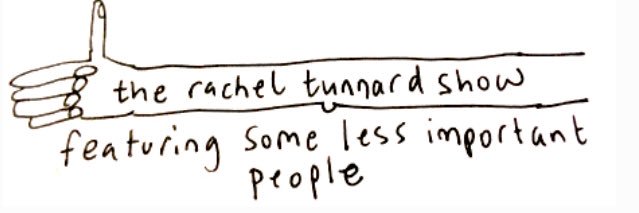 the rachel tunnard show
featuring some less important
people